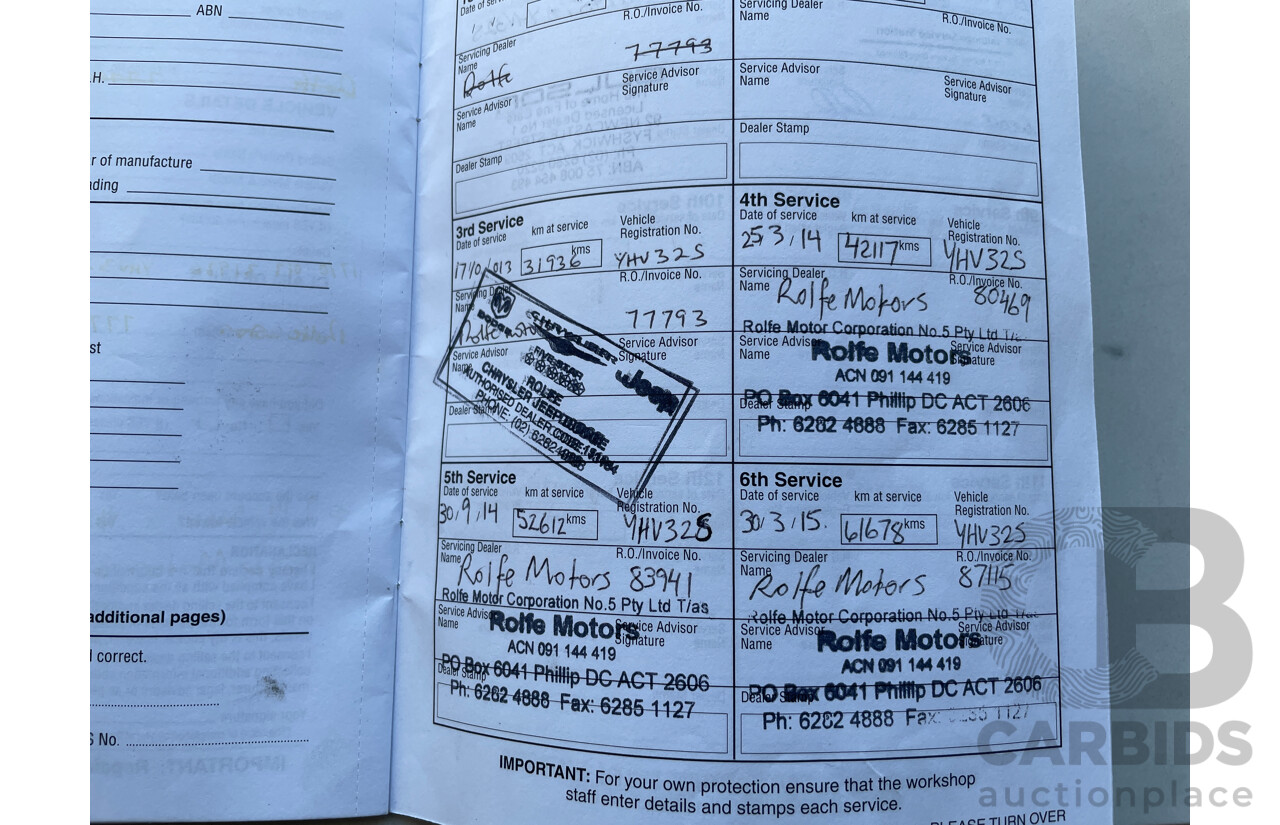 ABN
.H.
r of manufacture
ading
st
additional pages)
l correct.
S No.
Date of service
R.O./Invoice No.
Servicing Dealer
Name
77793
Rolfe
Service Advisor
Name
Service Advisor
Signature
Dealer Stamp
Servicing Dealer
Name
R.O./Invoice No.
Service Advisor
Name
Service Advisor
Signature
Dealer Stamp
3rd Service
Date of service
km at service
Vehicle
Registration No.
31936 kms
YHV32S
R.O./Invoice No.
Servicing Dealer
Name
77793
Rolfe
Service Advisor
Name
Service Advisor
Signature
Dealer Stamp
DODGE
CHRYSLER
Jeep
FIVE STAR
ROLFE
CHRYSLER JEEP DODGE
AUTHORISED DEALER CODE:
PHONE: (02) 6282 4888
4th Service
Date of service
km at service
Vehicle
Registration No.
25/3/14
42117 kms
YHV32S
Servicing Dealer
Name
R.O./Invoice No.
Rolfe Motors
80469
Rolfe Motor Corporation No.5 Pty Ltd T/a
Service Advisor
Name
Service Advisor
Signature
Rolfe Motors
ACN 091 144 419
Dealer Stamp
PO Box 6041 Phillip DC ACT 2606
Ph: 6282 4888 Fax: 6285 1127
5th Service
Date of service
km at service
Vehicle
Registration No.
30/9/14
52612 kms
YHV32S
Servicing Dealer
Name
R.O./Invoice No.
Rolfe Motors
83941
Rolfe Motor Corporation No.5 Pty Ltd T/as
Service Advisor
Name
Service Advisor
Signature
Rolfe Motors
ACN 091 144 419
Dealer Stamp
PO Box 6041 Phillip DC ACT 2606
Ph: 6282 4888 Fax: 6285 1127
6th Service
Date of service
km at service
Vehicle
Registration No.
30/3/15.
61678 kms
YHV32S
Servicing Dealer
Name
R.O./Invoice No.
Rolfe Motors
87115
Rolfe Motor Corporation No.5 Pty Ltd T/as
Service Advisor
Name
Service Advisor
Signature
Rolfe Motors
ACN 091 144 419
Dealer Stamp
PO Box 6041 Phillip DC ACT 2606
Ph: 6282 4888 Fax: 6285 1127
IMPORTANT: For your own protection ensure that the workshop
staff enter details and stamps each service.
PLEASE TURN OVER
CARBIDS
auctionplace